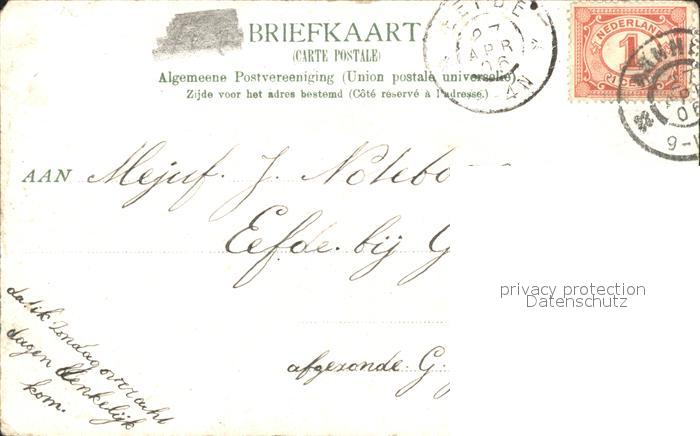 BRIEFKAART
(CARTE POSTALE)
Algemeene Postvereeniging (Union postale universelle).
Zijde voor het adres bestemd (Côté réservé à l'adresse.)
NEDERLAND
1
27
APR
06
9-1
AAN Mejuf. J. Notebo
Eefde. bij G
privacy protection
Datenschutz
afgezonde. G.
dat ik Zondag over acht
dagen denkelijk
kom.